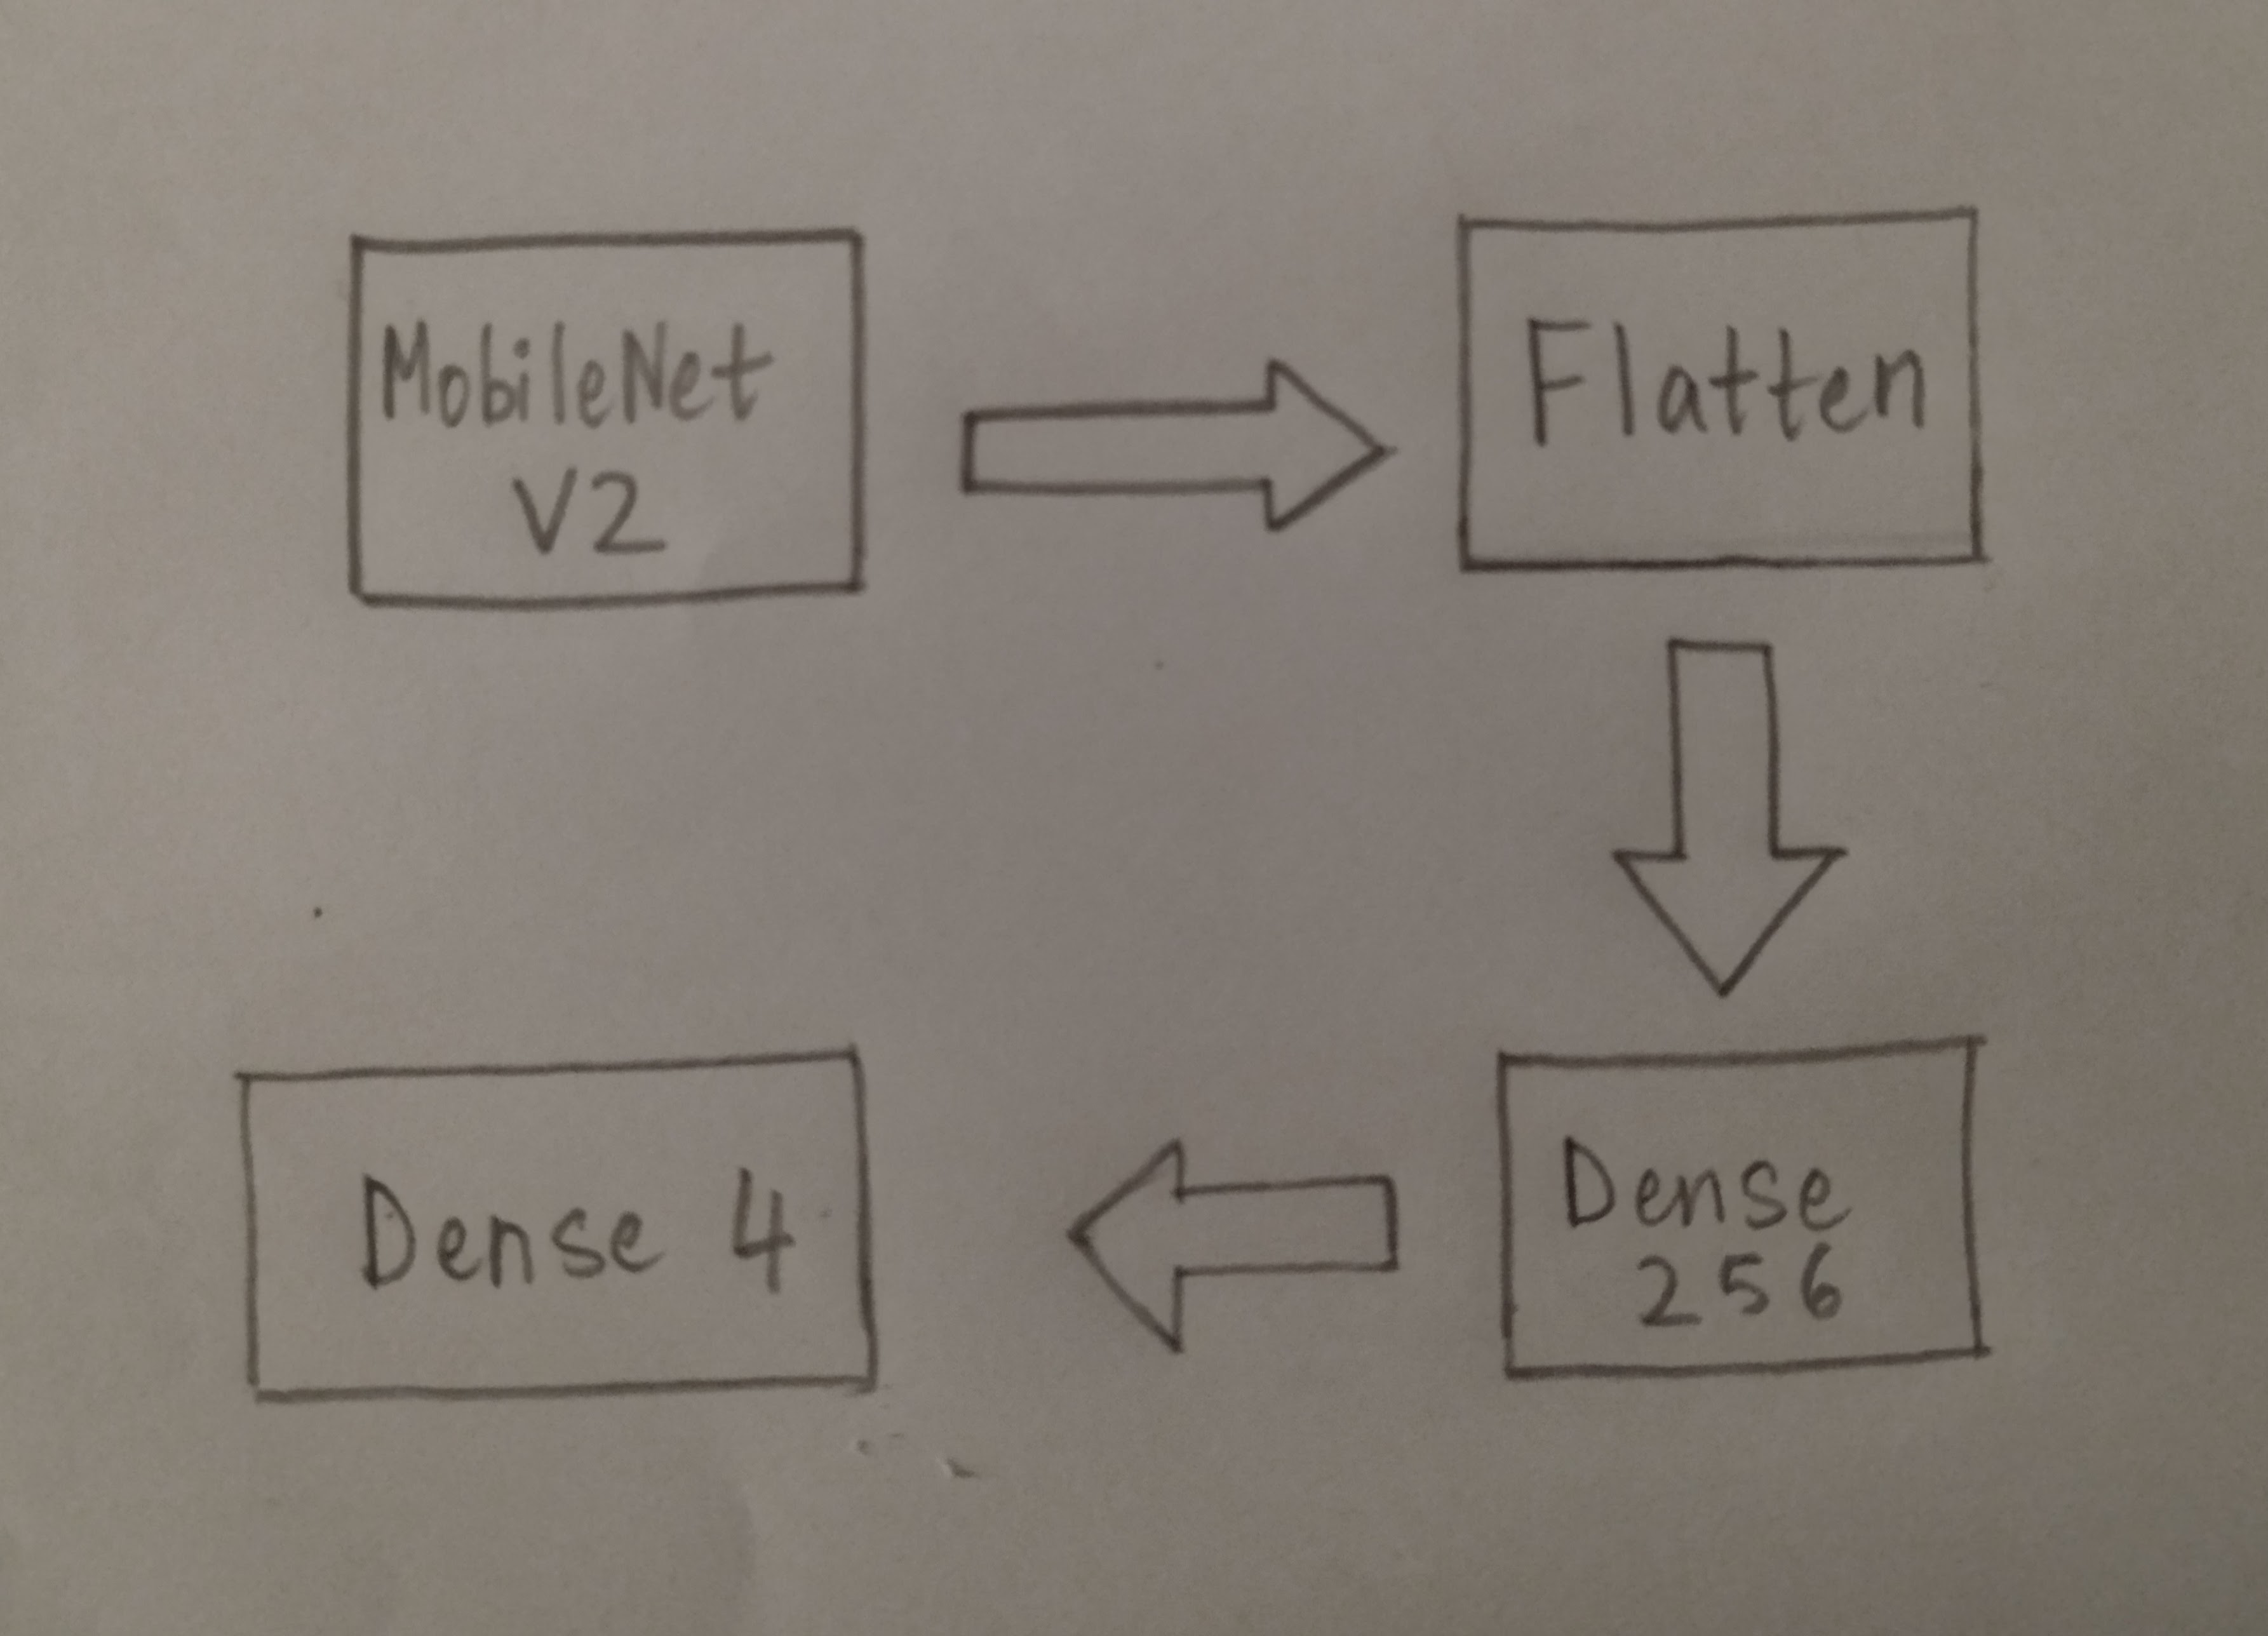 MobileNet
V2
Flatten
Dense
256
Dense 4